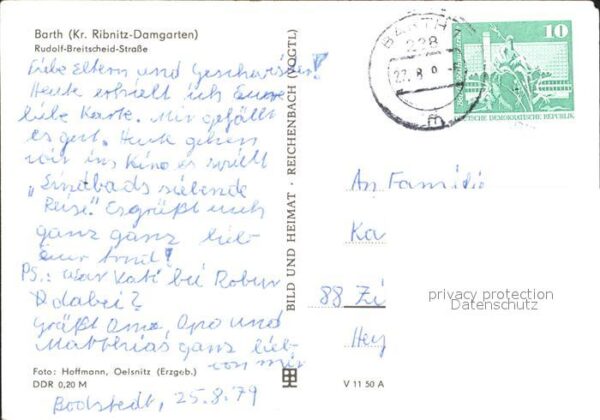 Barth (Kr. Ribnitz-Damgarten)
Rudolf-Breitscheid-Straße
Liebe Eltern und Geschwister!
Heute erhielt ich Eure
liebe Karte. Mir gefällt
es gut. Heute gehen
wir ins Kino es spielt
„Sindbads siebende
Reise." Es grüßt euch
ganz ganz lieb
eure
PS.: War Kati bei
dabei?
grüßt Oma, Opa und
Matthias ganz lieb
von mir
Foto: Hoffmann, Oelsnitz (Erzgeb.)
DDR 0,20 M
Bodstedt, 25.8.79
BILD UND HEIMAT · REICHENBACH (VOGTL)
V 11 50 A
BARTH 1
238
27. 8.
m
10
DEUTSCHE DEMOKRATISCHE REPUBLIK
An Familie
Ka
88 Zi
Hey
privacy protection
Datenschutz